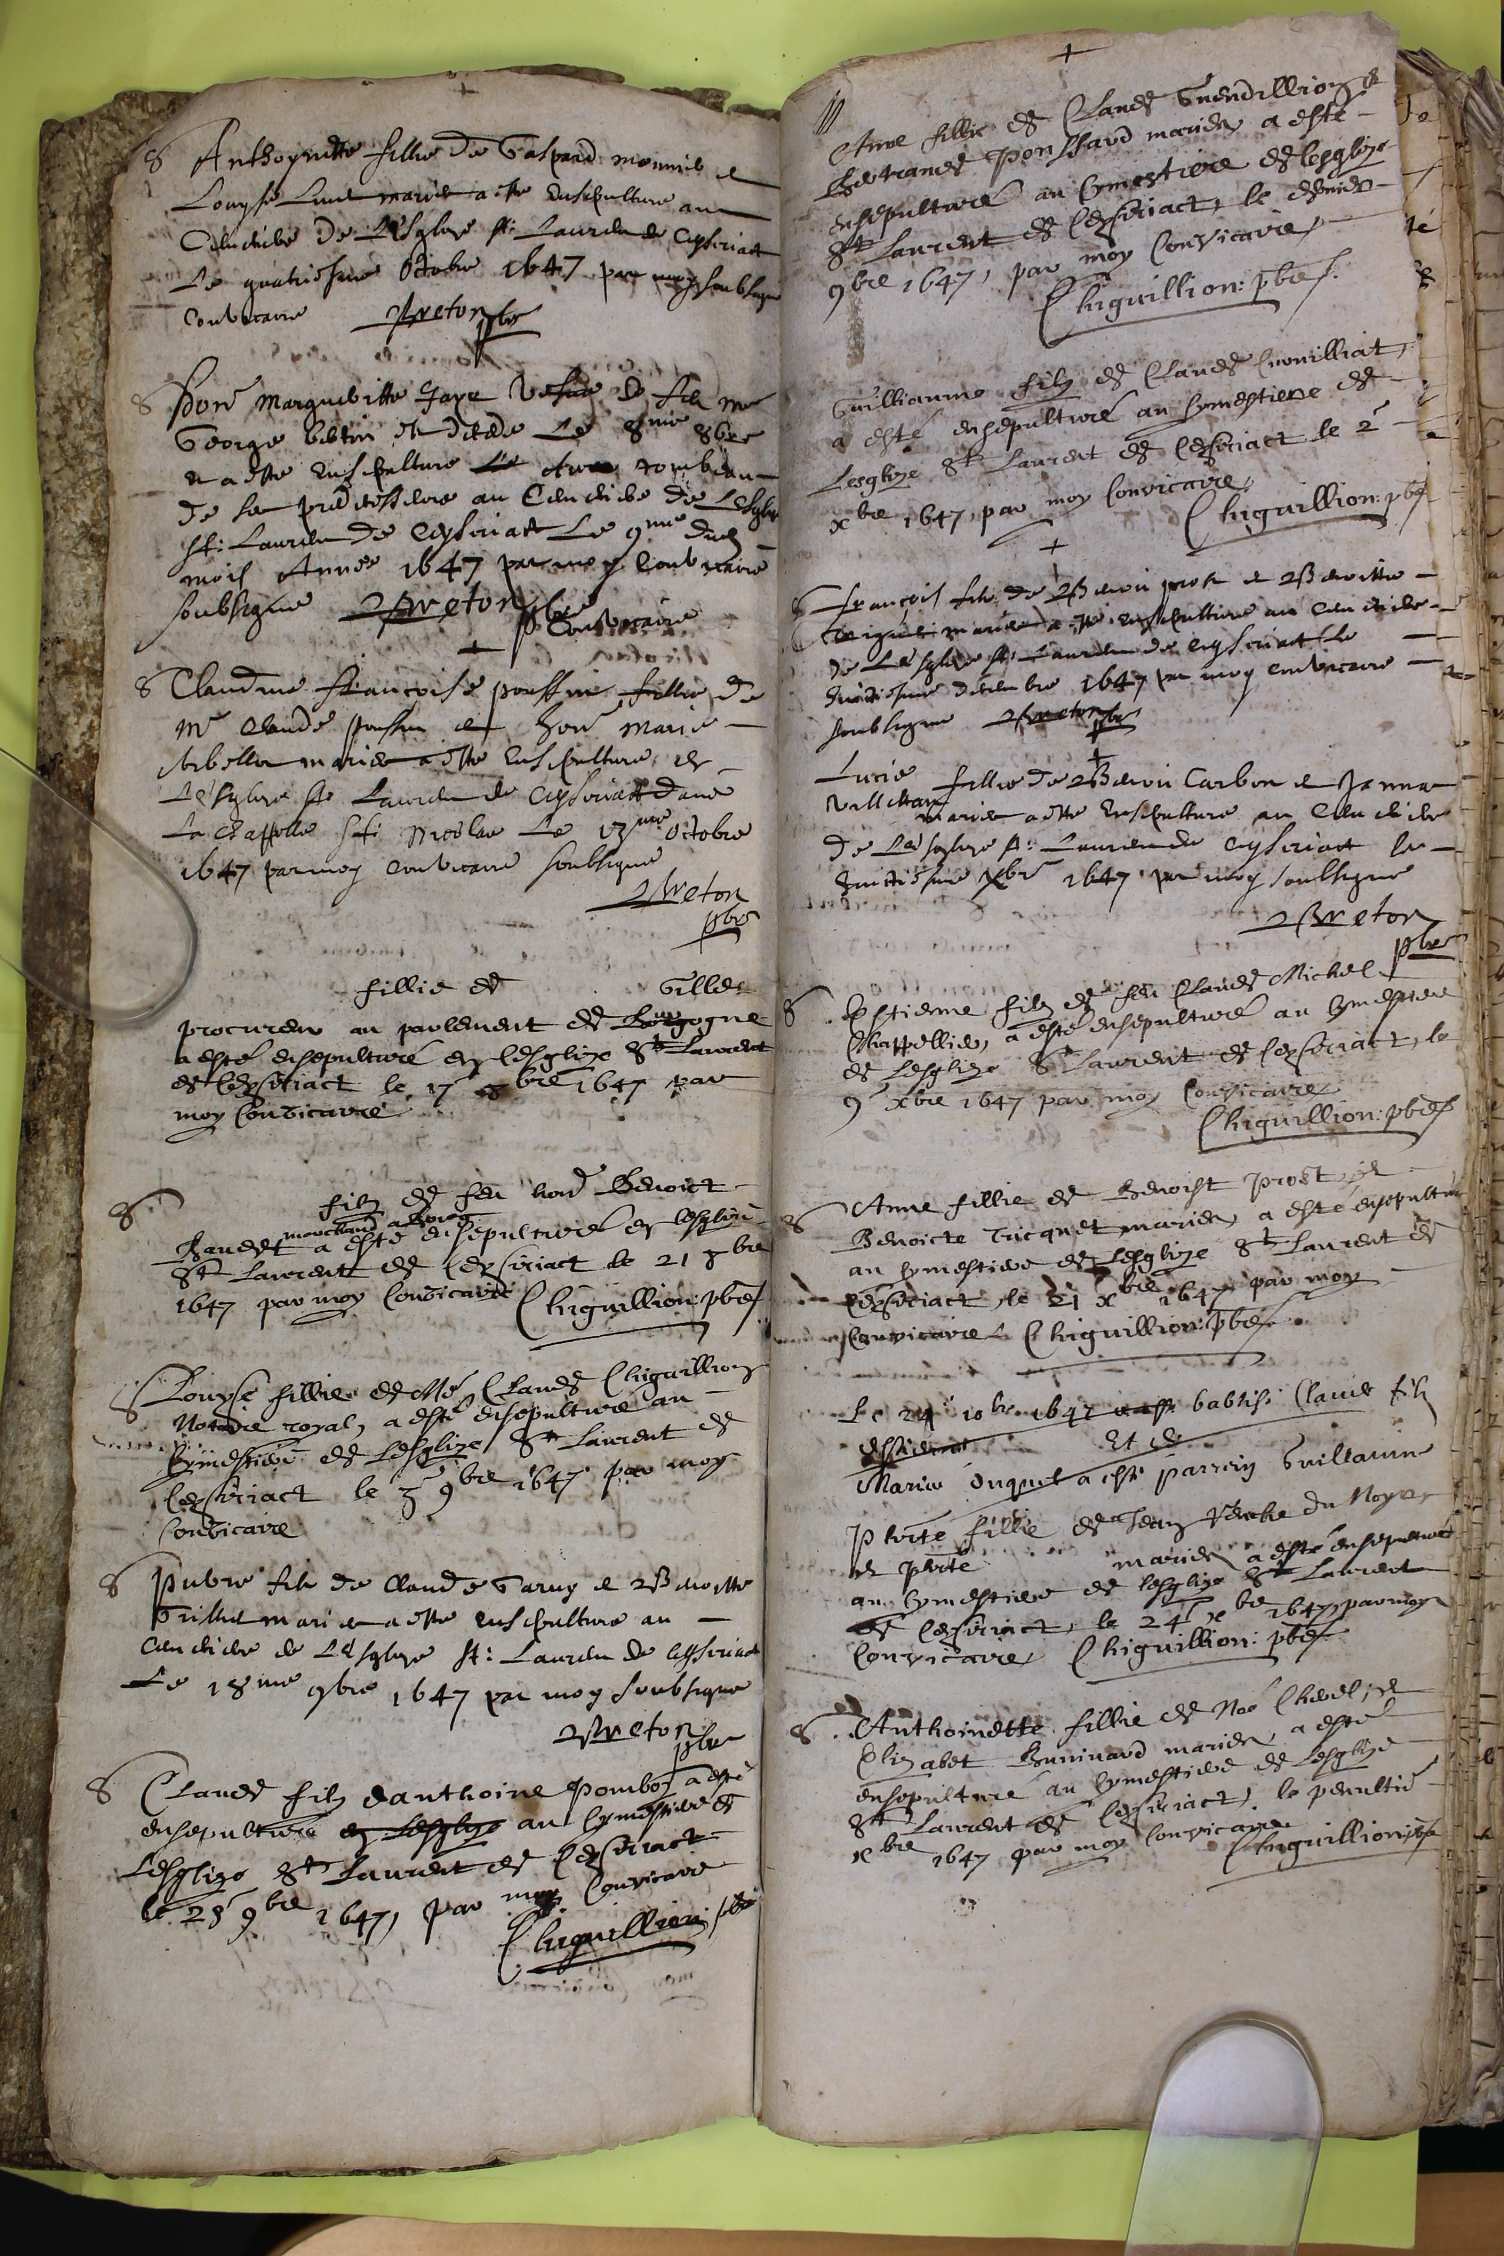 Anthoynette fillie de Gaspard monnier e
Louyse mariés a este ensepulture au
Cemetiere de Lesglyse st: Lauren de Ceyseriat
Le quatriesme Octobre 1647 par moy soubsigne
Convicaire Breton pbr
Hon Margueritte Jaye vefve de feu mr
George est decede Le 8me 8bre
e a este ensepulture tombeau
de ses predecesseurs au Cemetiere de Lesglyse
st: Lauren de Ceyseriat Le 9me dud
mois Annee 1647 par moy Convicaire
soubsigne Breton pbr
Convicaire
Claudine Francoise poussin fillie de
mr Claude poussin et hon Marie
mariés a este ensepulture en
Lesglyse st Lauren de Ceyseriat dans
La Chappelle st: Nicolas Le 13me Octobre
1647 par moy Convicaire soubsigne
Breton
pbr
fillie de Gilles
procureur au parlement de Bourgogne
a esté ensepulturé en lesglize St Laurent
de Ceyseriact le 17 8bre 1647 par
moy Convicaire
filz de feu hon Benoict
marchand a Bourg
a esté ensepulturé en lesglize
St Laurent de Ceyseriact le 21 8bre
1647 par moy Convicaire Chiguillion: pbre
Louyse fillie de Me Claude Chiguillion
Notaire royal, a esté ensepulturé au
Cymestiere de Lesglize St Laurent de
Ceyseriact le 3 9bre 1647 par moy
Convicaire
Pierre filz de Claude e Benoitte
mariés a este ensepulture au
Cemetiere de Lesglyse st: Lauren de Ceyseriat
Le 18me 9bre 1647 par moy soubsigne
Breton
pbr
Claude filz danthoine Pombos a esté
ensepulturé en Lesglize au Cymestiere de
Lesglize St Laurent de Ceyseriact
le 28 9bre 1647, par moy Convicaire
Chiguillion: pbre
Anne fillie de Claude Guendillion e
Bertrande Ponssard mariés a esté
ensepulturé au Cymestiere de lesglize
St Laurent de Ceyseriact, le dernier
9bre 1647, par moy Convicaire
Chiguillion: pbre
Guillianme filz de Claude Cuvilliat,
a esté ensepulturé au Cymestiere de
Lesglize St Laurent de Ceyseriact le 2
xbre 1647, par moy Convicaire
Chiguillion: pbre
Francois filz de Benoi prost e Benoitte
mariés a este ensepulture au Cemetiere
de Lesglyse st: Lauren de Ceyseriat le
huictiesme decembre 1647 par moy Convicaire
soubsigne Breton pbr
Lucie fillie de Benoi Carbon e Janne
mariés a este ensepulture au Cemetiere
de Lesglyse st: Lauren de Ceyseriat le
huictiesme xbre 1647 par moy soubsigne
Breton
pbr
Estienne filz de feu Claude Michel
Chappellier, a esté ensepulturé au Cymestiere
de Lesglize St Laurent de Ceyseriact, le
9 xbre 1647 par moy Convicaire
Chiguillion: pbre
Anne fillie de Benoist Prost, e
Benoicte Tricquet mariés, a esté ensepulturé
au Cymestiere de Lesglize St Laurent de
Ceyseriact, le 21 xbre 1647 par moy
Convicaire Chiguillion: pbre
Le 24 10bre 1647 babtisé Claude filz
Et de
Marie a esté parrein Guillaume
Pierrte fillie de Jean du Noyer
e Pierrte mariés a esté ensepulturé
au Cymestiere de lesglize St Laurent
de Ceyseriact, le 24 xbre 1647, par moy
Convicaire Chiguillion: pbre
Anthoinette fillie de Noé e
Elizabet mariés, a esté
ensepulturé au Cymestiere de Lesglize
St Laurent de Ceyseriact, le penultie
xbre 1647 par moy Convicaire
Chiguillion: pbre